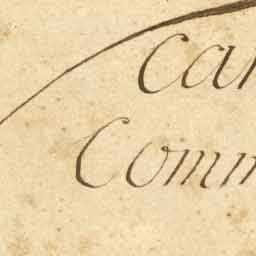 Car
Comm